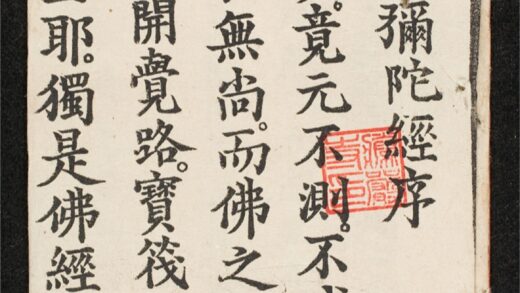 彌陀經序
竟元不測。不
無尚。而佛之
開覺路。寶筏
耶。獨是佛經